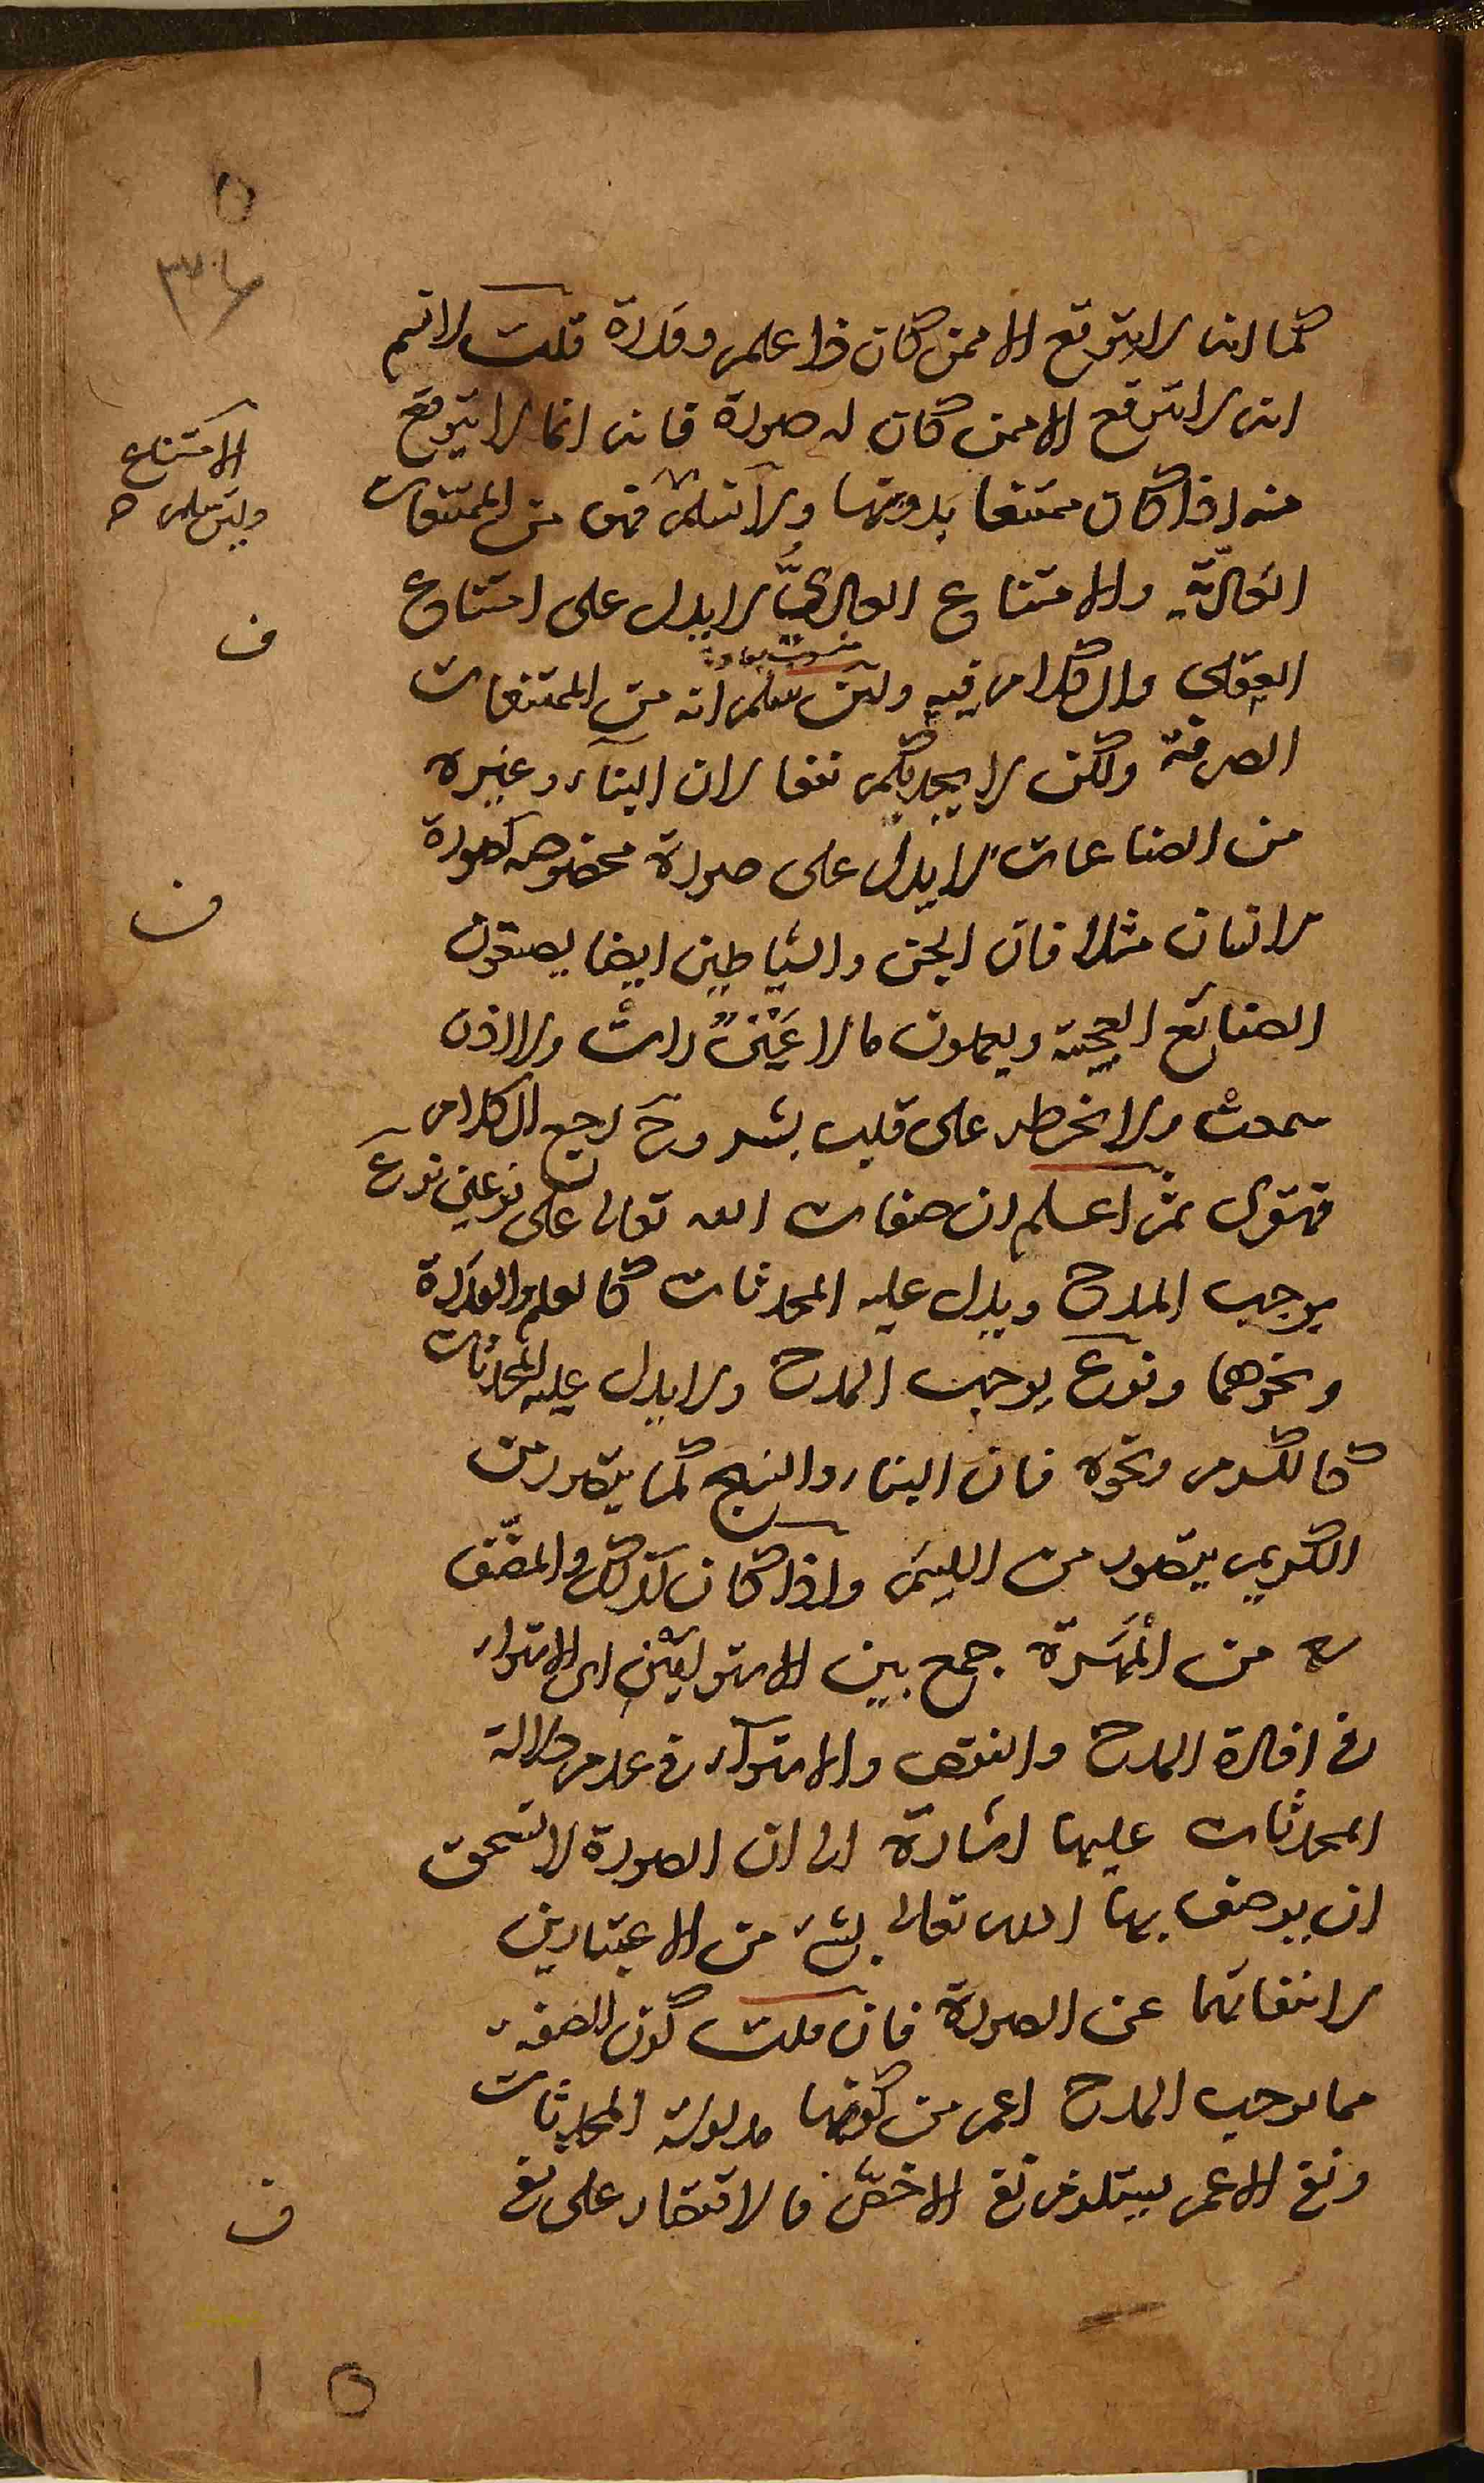 كما انه لا يتوقع الا ممن كان ذا علم وقدرة قلت لا نسلم
انه لا يتوقع الا ممن كان له صورة فانه انما لا يتوقع
منه اذا كان ممتنعا بدونها ولا نسلم فهى من الممتنعات
العاديّة والامتناع العادىُّ لا يدل على امتناع
العقلى والكلام فيه ولئن سلم انه من الممتنعات
الصرفة ولكن لا يجديكم نفعا لان البناء وغيره
من الصناعات لا يدل على صورة مخصوصه كصورة
الانسان مثلا فان الجن والشياطين ايضا يصنعون
الصنائع العجيبة ويعملون ما لا عَيْنٌ رات ولا اذن
سمعت ولا خطر على قلب بشر وح رجع الكلام
فنقول ثم اعلم ان صفات الله تعالى على نوعين نوع
يوجب المدح ويدل عليه المحدثات كالعلم والقدرة
ونحوهما ونوع يوجب المدح ولا يدل عليه المحدثات
كالكرم ونحوه فان البناء والنسج كما يتصور من
الكريم يتصور من اللئيم واذا كان كذلك والمصنّف
ره من المَهَرة جمع بين الاستوائين اى الاستواء
فى افادة المدح والنقص والاستواء فى عدم دلالة
المحدثات عليها اشارة الى ان الصورة لا تستحق
ان يوصف بها الله تعالى بشئ من الاعتبارين
لانتفائهما عن الصورة فان قلت كون الصفة
مما يوجب المدح اعم من كونها مدلولة المحدثات
ونفى الاعم يستلزم نفى الاخصّ فالاقتصار على نفى
الامتناع
ولئن سلم
ف
ف
ف